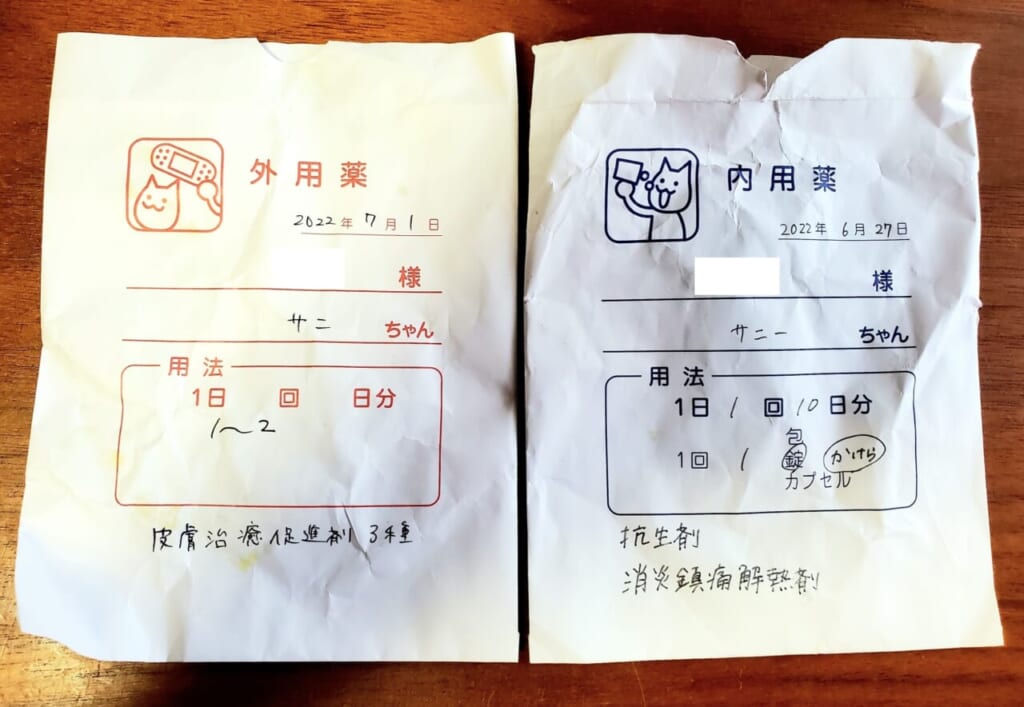 外用薬
2022年 7月 1日
様
サニ ちゃん
用法
1日 回 日分
1〜2
皮膚治癒促進剤 3種
内用薬
2022年 6月 27日
様
サニー ちゃん
用法
1日 1 回 10 日分
包
1回 1 錠 かけら
カプセル
抗生剤
消炎鎮痛解熱剤